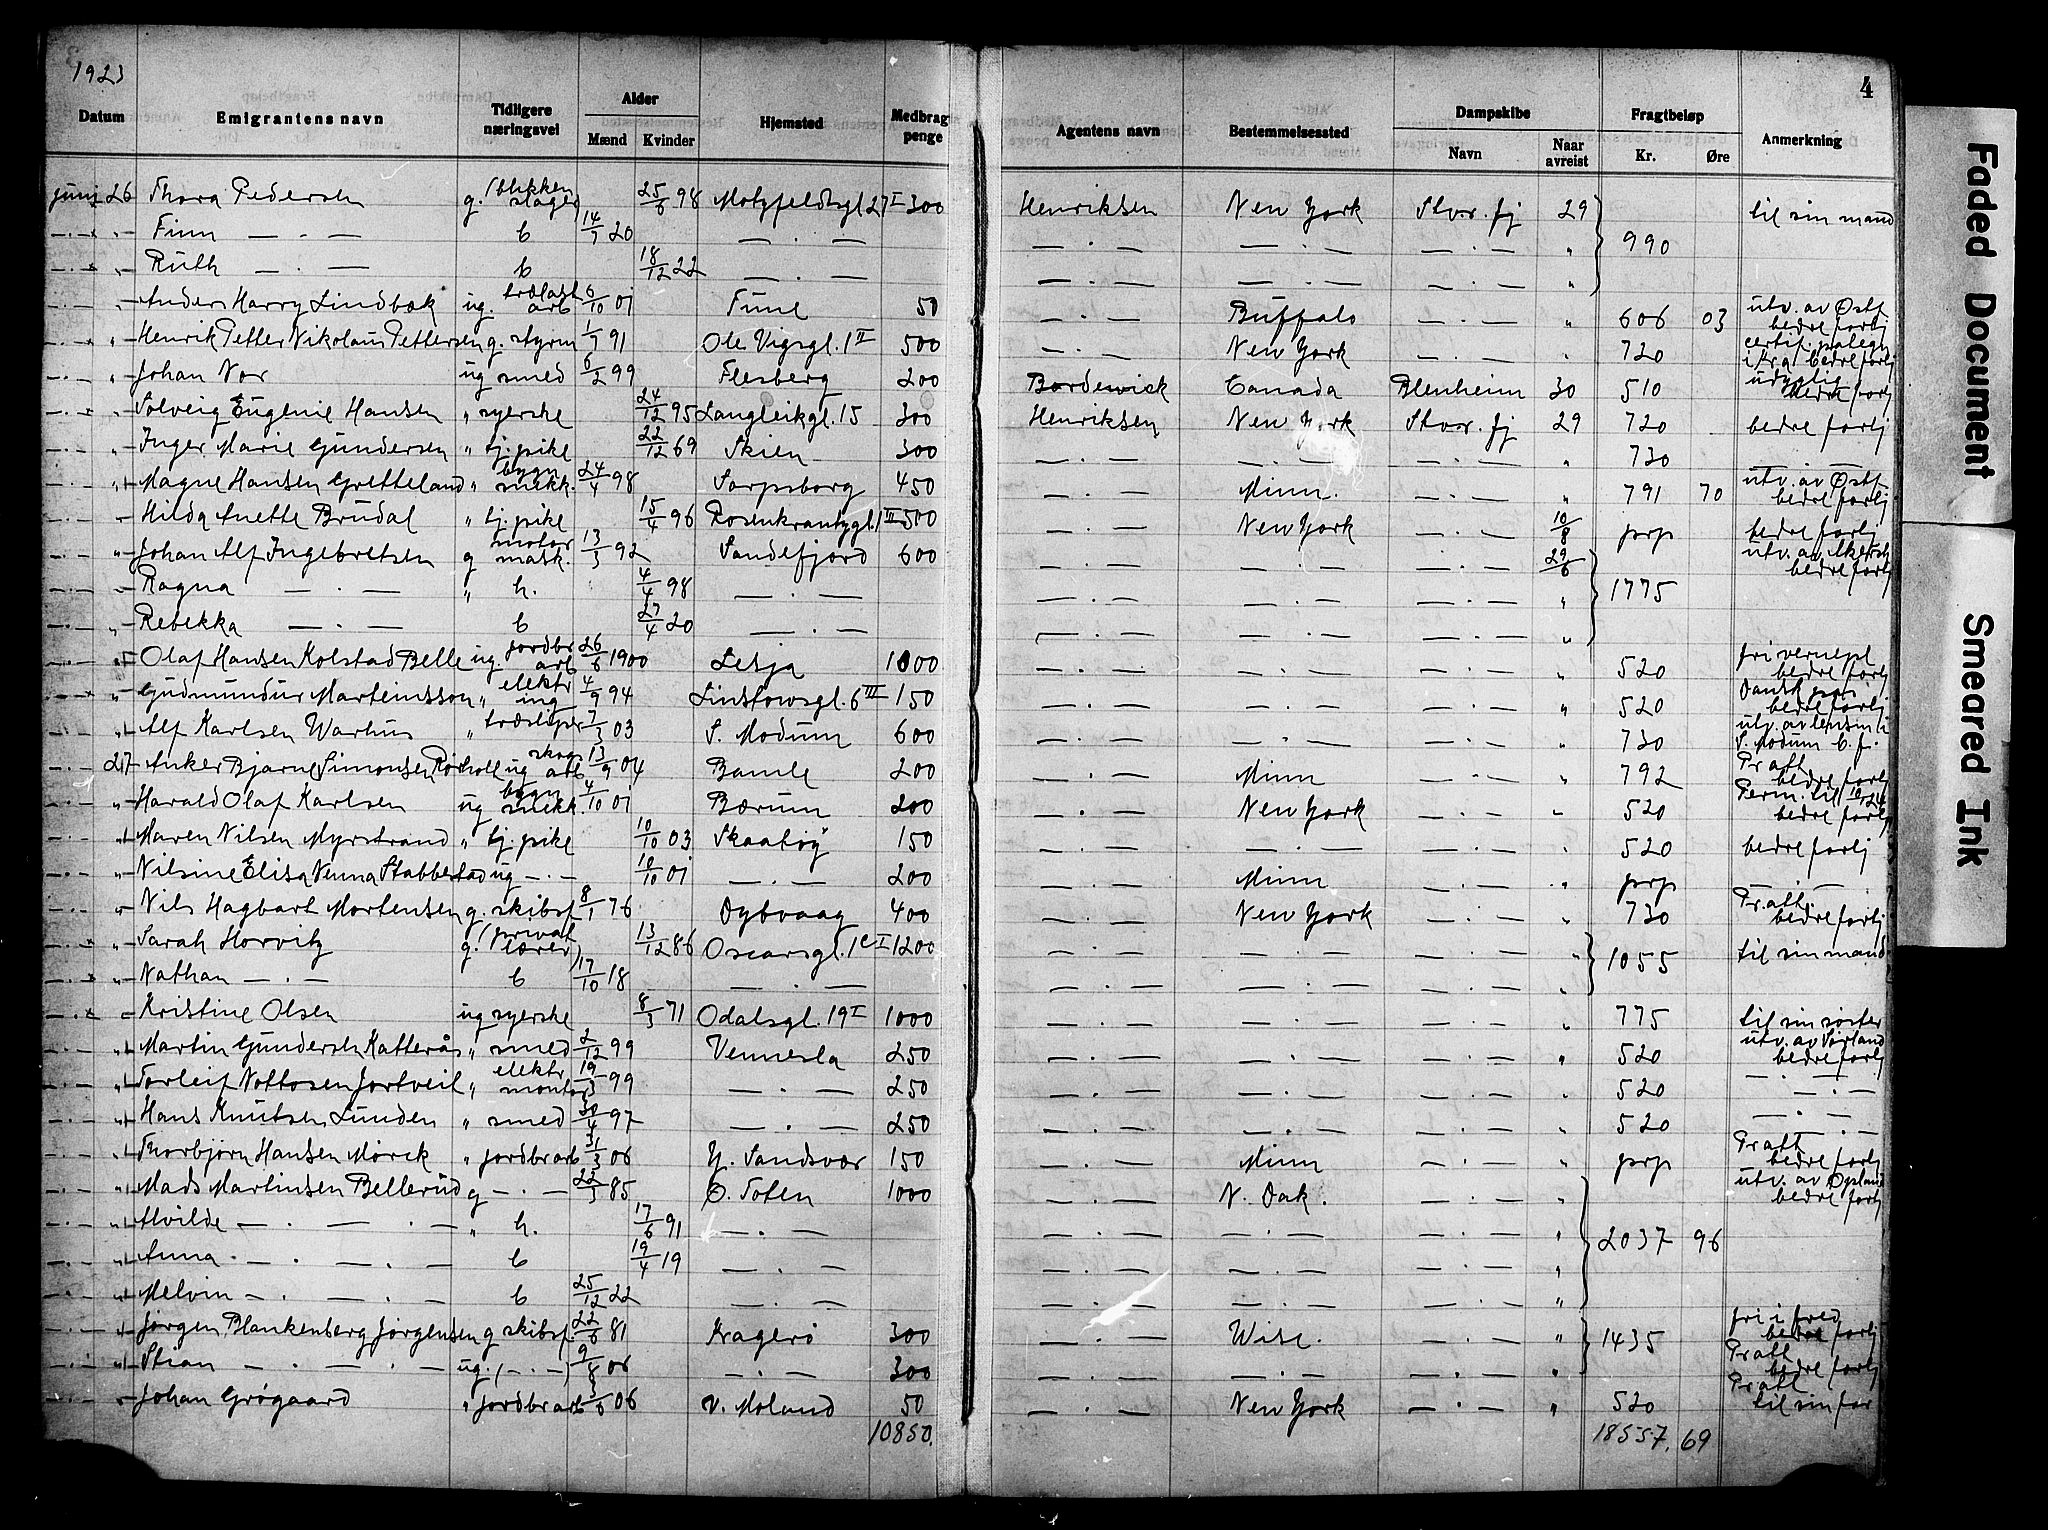 1923
4
Datum | Emigrantens navn | Tidligere næringsvei | Alder | Mænd | Kvinder | Hjemsted | Medbragt penge | Agentens navn | Bestemmelsessted | Dampskibe | Navn | Naar avreist | Fragtbeløp | Kr. | Øre | Anmerkning
juni 26 Thora Pedersen g. (blikkenslager) 25/6 98 Motzfeldtsgt. 27 I 300 Henriksen New York Stav.fj 29 til sin mand
" Finn — . — b 14/7 20 — . — — . — — . — — . — " 990
" Ruth — . — b 18/12 22 — . — — . — — . — — . — "
" Anders Harry Lindbæk ug. trælast arb 6/10 01 Furnes 50 — . — Buffalo — . — " 606 03 utv. av Østf. bedre forlj
" Henrik Petter Nikolaus Pettersen g. styrm 1/7 91 Ole Vigsgt. 1 II 500 — . — New York — . — " 720 certif. paategn i Kra bedre forlj
" Johan Nor ug smed 6/2 99 Flesberg 200 Bordewick Canada Blenheim 30 510 udygtig bedre forlj
" Solveig Eugenie Hansen " syerske 24/12 95 Langleikgt. 15 300 Henriksen New York Stav.fj 29 720 bedre forlj
" Inger Marie Gundersen " tj.pike 22/12 69 Skien 300 — . — — . — — . — " 730 — . —
" Magne Hansen Gretteland " bygn snekk. 24/4 98 Sarpsborg 450 — . — Minn. — . — " 791 70 utv. av Østf. bedre forlj
" Hilda Anette Brudal " tj.pike 15/4 96 Rosenkrantzgt. 1 III 500 — . — New York — . — 10/8 prp bedre forlj
" Johan Alf Ingebretsen g motor mask. 13/3 92 Sandefjord 600 — . — — . — — . — 29/6 utv. av Akersh bedre forlj
" Ragna — . — " h. 4/4 98 — . — — . — — . — — . — " 1775
" Rebekka — . — b 27/4 20 — . — — . — — . — — . — "
" Olaf Hansen Kolstad Belle ug. jordbr arb 26/6 1900 Lesja 1000 — . — — . — — . — " 520 fri vernepl bedre forlj
" Gudmundur Marteinsson " elektr ing 4/9 94 Linstowsgt. 6 III 150 — . — — . — — . — " 520 Dansk pas bedre forlj
" Alf Karlsen Warhus " træsliper 7/3 03 S. Modum 600 — . — — . — — . — " 730 utv. av lensm i S. Modum b.f.
27 Anker Bjarne Simonsen Rørholt ug skog arb 13/9 04 Bamle 200 — . — Minn — . — " 792 Pratt bedre forlj
" Harald Olaf Karlsen ug bygn snekk. 4/10 01 Bærum 200 — . — New York — . — " 520 Perm. til 10/24 bedre forlj
" Maren Nilsen Myrstrand " tj.pike 10/10 03 Skaatøy 150 — . — — . — — . — " 520 bedre forlj
" Nilsine Elisa Venna Stabbestad ug — . — 10/10 01 — . — 200 — . — Minn — . — " prp — . —
" Nils Hagbart Mortensen g. skibsf. 8/1 76 Dybvaag 400 — . — New York — . — " 730 Pratt. bedre forlj
" Sarah Horvitz g. (privat lærer) 13/12 86 Oscarsgt. 1 c I 1200 — . — — . — — . — " 1055 til sin mand
" Nathan — . — b 17/10 18 — . — — . — — . — — . — "
" Kristine Olsen ug syerske 8/3 71 Odalsgt. 19 I 1000 — . — — . — — . — " 775 til sin søster
" Martin Gundersen Katterås " smed 2/12 99 Vennesla 250 — . — — . — — . — " 520 utv. av Sørland bedre forlj
" Torleif Nottosen Jortveit " elektr montør 19/3 99 — . — 250 — . — — . — — . — " 520 — . —
" Hans Knutsen Lunden " smed 30/4 97 — . — 250 — . — — . — — . — " 520 — . —
" Thorbjørn Hansen Mørck " jordbrarb 31/3 06 Y. Sandsvær 150 — . — Minn — . — " prp Pratt bedre forlj
" Mads Martinsen Bellerud g — . — 22/3 85 Ø. Toten 1000 — . — N. Dak. — . — " utv. av Opland bedre forlj
" Alvilde — . — . — " h. 17/6 91 — . — — . — — . — — . — " 2037 96
" Anna — . — . — b 19/4 19 — . — — . — — . — — . — "
" Melvin — . — . — b 25/12 22 — . — — . — — . — — . — "
" Jørgen Blankenberg Jørgensen g skibsf. 22/6 81 Kragerø 300 — . — Wisc. — . — " 1435 fri i fred bedre forlj
" Stian — . — . — ug. (— . —) 9/8 06 — . — 300 — . — — . — — . — " Pratt bedre forlj
" Johan Grøgaard " jordbrarb 3/6 06 V. Moland 50 — . — New York — . — " 520 Pratt til sin far
10850. 18557, 69
Faded Document
Smeared Ink